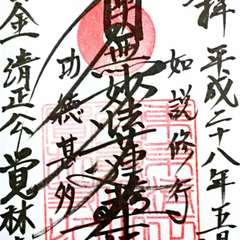 拝 平成二十八年五月
如説修行
南無妙法蓮華経
功徳甚多
金 清正公 覚林